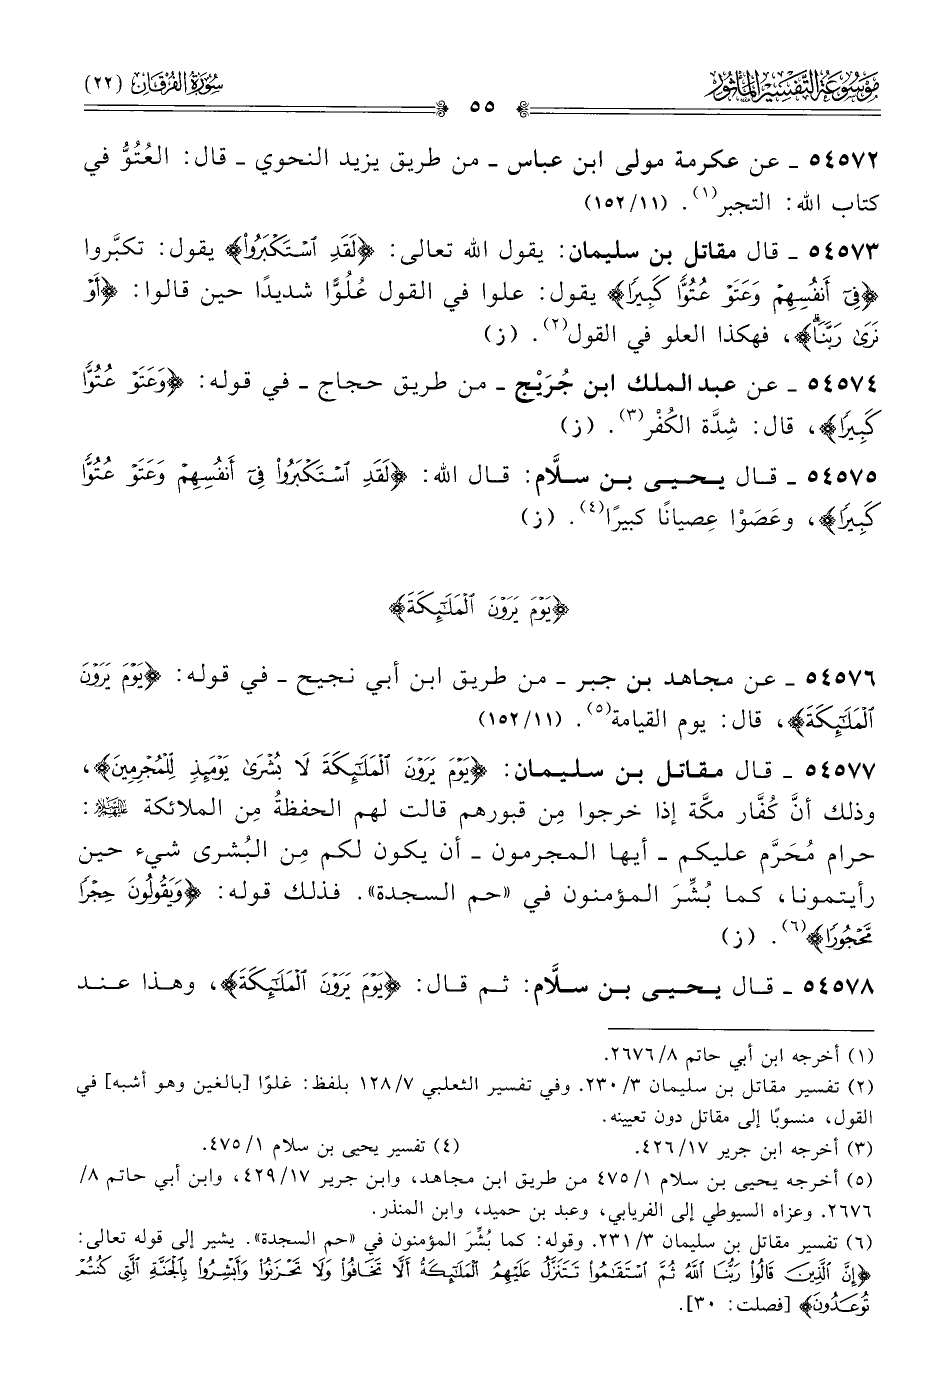 مَوْسُوعَةُ التَّفْسِيرِ المَأْثُورِ
٥٥
سُورَةُ الفُرْقَانِ (٢٢)
٥٤٥٧٢ ـ عن عكرمة مولى ابن عباس ـ من طريق يزيد النحوي ـ قال: العُتُوُّ في
كتاب الله: التجبر(١). (١١/ ١٥٢)
٥٤٥٧٣ ـ قال مقاتل بن سليمان: يقول الله تعالى: ﴿لَقَدِ ٱسۡتَكۡبَرُواْ﴾ يقول: تكبَّروا
﴿فِيٓ أَنفُسِهِمۡ وَعَتَوۡ عُتُوّٗا كَبِيرٗا﴾ يقول: علوا في القول عُلُوًّا شديدًا حين قالوا: ﴿أَوۡ
نَرَىٰ رَبَّنَاۗ﴾، فهكذا العلو في القول(٢). (ز)
٥٤٥٧٤ ـ عن عبد الملك ابن جُرَيْج ـ من طريق حجاج ـ في قوله: ﴿وَعَتَوۡ عُتُوّٗا
كَبِيرٗا﴾، قال: شِدَّة الكُفْر(٣). (ز)
٥٤٥٧٥ ـ قال يحيى بن سلَّام: قال الله: ﴿لَقَدِ ٱسۡتَكۡبَرُواْ فِيٓ أَنفُسِهِمۡ وَعَتَوۡ عُتُوّٗا
كَبِيرٗا﴾، وعَصَوْا عِصيانًا كبيرًا(٤). (ز)
﴿يَوۡمَ يَرَوۡنَ ٱلۡمَلَٰٓئِكَةَ﴾
٥٤٥٧٦ ـ عن مجاهد بن جبر ـ من طريق ابن أبي نجيح ـ في قوله: ﴿يَوۡمَ يَرَوۡنَ
ٱلۡمَلَٰٓئِكَةَ﴾، قال: يوم القيامة(٥). (١١/ ١٥٢)
٥٤٥٧٧ ـ قال مقاتل بن سليمان: ﴿يَوۡمَ يَرَوۡنَ ٱلۡمَلَٰٓئِكَةَ لَا بُشۡرَىٰ يَوۡمَئِذٖ لِّلۡمُجۡرِمِينَ﴾،
وذلك أنَّ كُفَّار مكَّة إذا خرجوا مِن قبورهم قالت لهم الحفظةُ مِن الملائكة عليهم السلام:
حرام مُحَرَّم عليكم ـ أيها المجرمون ـ أن يكون لكم مِن البُشرى شيء حين
رأيتمونا، كما بُشِّرَ المؤمنون في «حم السجدة». فذلك قوله: ﴿وَيَقُولُونَ حِجۡرٗا
مَّحۡجُورٗا﴾(٦). (ز)
٥٤٥٧٨ ـ قال يحيى بن سلَّام: ثم قال: ﴿يَوۡمَ يَرَوۡنَ ٱلۡمَلَٰٓئِكَةَ﴾، وهذا عند
(١) أخرجه ابن أبي حاتم ٨/ ٢٦٧٦.
(٢) تفسير مقاتل بن سليمان ٣/ ٢٣٠. وفي تفسير الثعلبي ٧/ ١٢٨ بلفظ: غلوًا [بالغين وهو أشبه] في
القول، منسوبًا إلى مقاتل دون تعيينه.
(٣) أخرجه ابن جرير ١٧/ ٤٢٦. (٤) تفسير يحيى بن سلام ١/ ٤٧٥.
(٥) أخرجه يحيى بن سلام ١/ ٤٧٥ من طريق ابن مجاهد، وابن جرير ١٧/ ٤٢٩، وابن أبي حاتم ٨/
٢٦٧٦. وعزاه السيوطي إلى الفريابي، وعبد بن حميد، وابن المنذر.
(٦) تفسير مقاتل بن سليمان ٣/ ٢٣١. وقوله: كما بُشِّرَ المؤمنون في «حم السجدة». يشير إلى قوله تعالى:
﴿إِنَّ ٱلَّذِينَ قَالُواْ رَبُّنَا ٱللَّهُ ثُمَّ ٱسۡتَقَٰمُواْ تَتَنَزَّلُ عَلَيۡهِمُ ٱلۡمَلَٰٓئِكَةُ أَلَّا تَخَافُواْ وَلَا تَحۡزَنُواْ وَأَبۡشِرُواْ بِٱلۡجَنَّةِ ٱلَّتِي كُنتُمۡ
تُوعَدُونَ﴾ [فصلت: ٣٠].